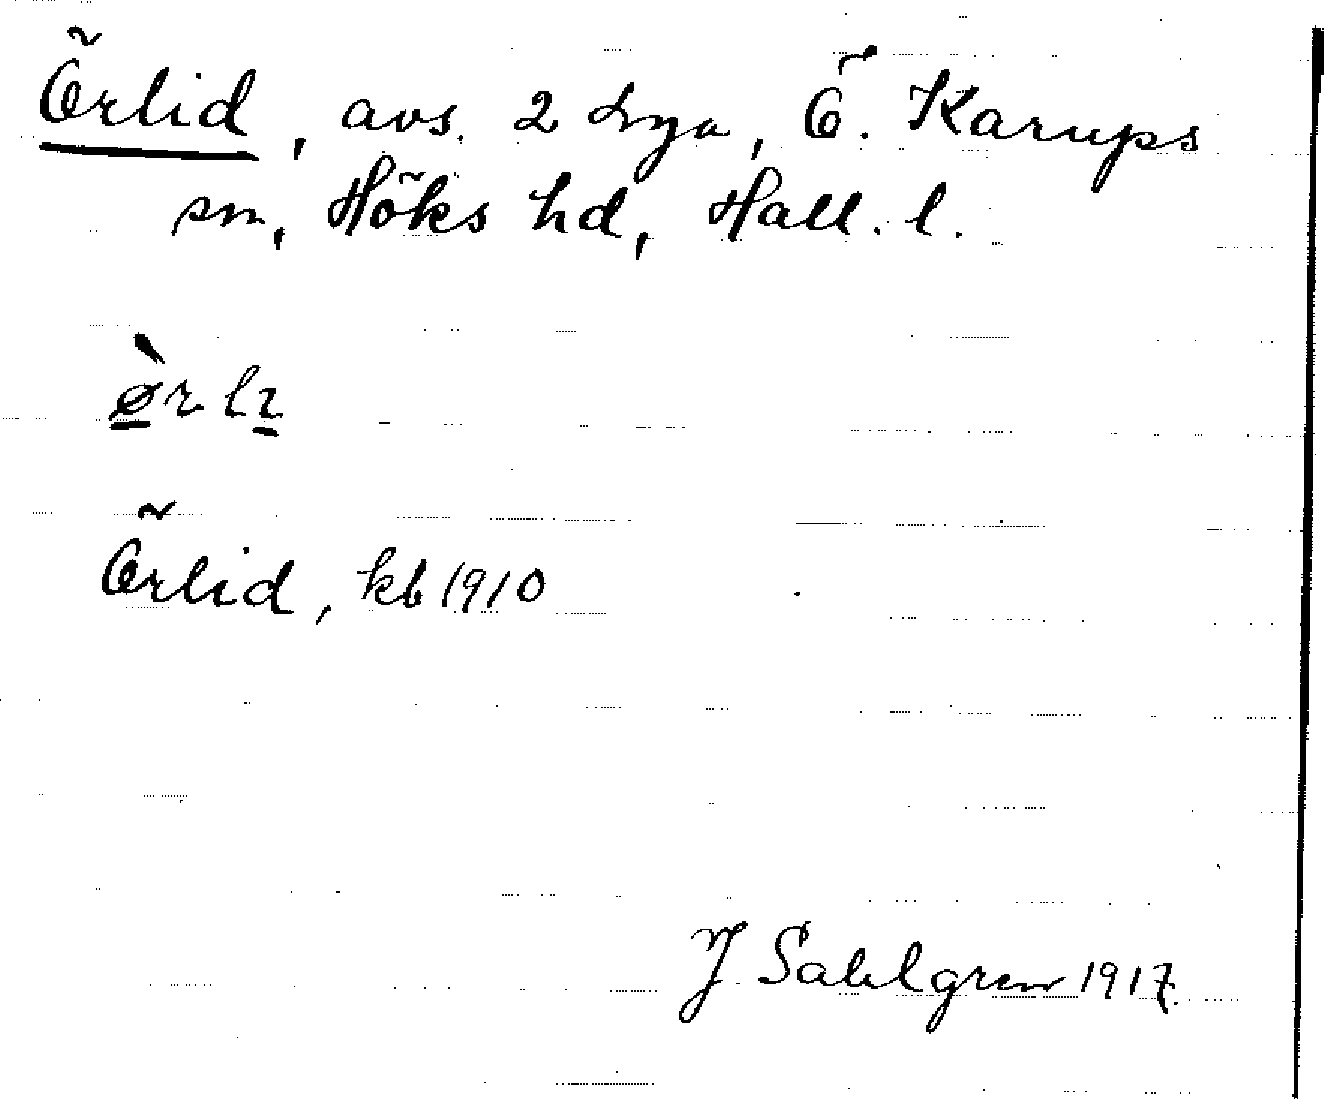 Örlid, avs. 2 Lya, Ö. Karups
sn, Höks hd, Hall. l.
ø̀rlɪ
Örlid, kb 1910
J Sahlgren 1917.